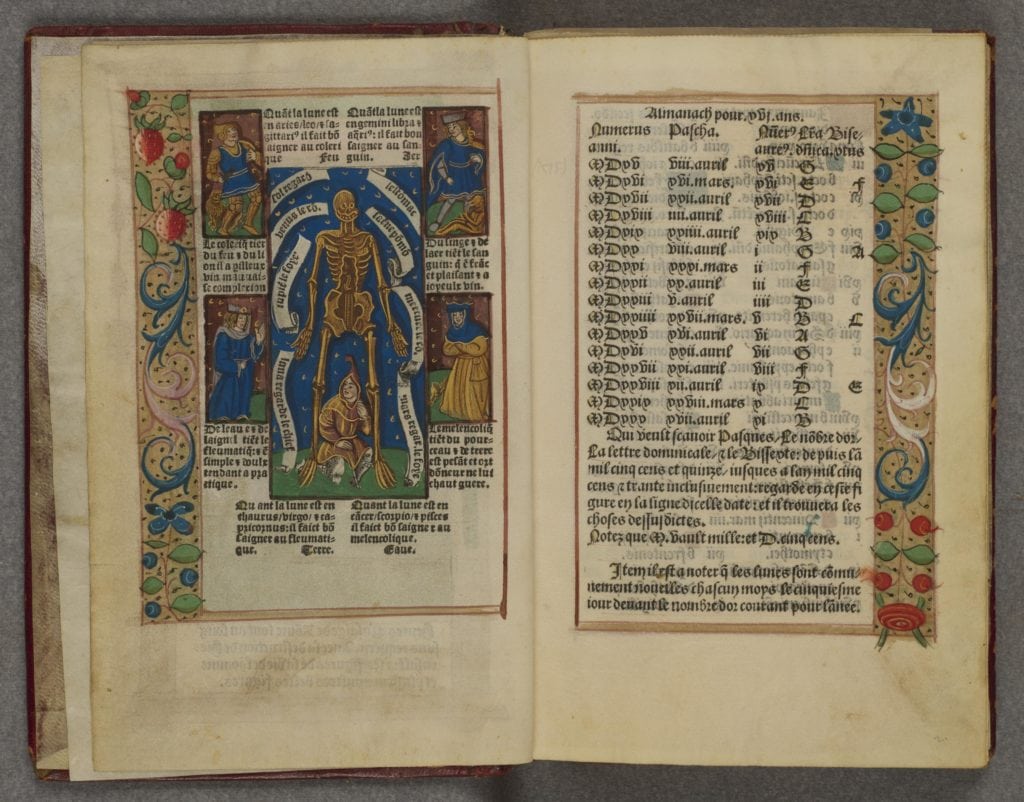 Quãt la lune est
en aries/leo/z sa-
gittari9 il fait bõ
saigner au coleri
que Feu
Quãt la lune est
en gemini libra z
aq̃ri9: il fait bon
saigner au san-
guin. Aer
Le coleriq̃ tiẽt
du feu z du li
on il a
vin mauuai-
se complexion
Du singe z de
laer tiẽt le san
guin: q̃ ẽ frãc
et plaisant z a
ioyeulx vin.
sol regard
lestomac
venus le rõ.
la lune
iupit̃ le foye
mercure le rõ
luna regarde le chief
mars regar. le foye
De leau z de
laignel tiẽt le
fleumatiq̃: ẽ
simple z doulx
tendant a pra
ctique.
Le melencoliq̃
tiẽt du pour-
ceau z de terre
est pesãt et ort
dõneur ne lui
chault guere.
Quant la lune est en
thaurus/virgo/z ca-
pricornus: il faict bõ
saigner au fleumati-
que. Terre.
Quant la lune est en
cãcer/scorpio/z pisces
il faict bõ saigner au
melencolique.
Eaue.
Almanach pour .xvi. ans.
Numerus Pascha. Nũer9 Lr̃a Bise-
anni. aure9. dñica. xtus
MDxv viii.auril xv G
MDxvi mars xvi E F
MDxvii xii.auril xvii D
MDxviii iiii.auril xviii C
MDxix xxiiii.auril xix B
MDxx viii.auril i G A
MDxxi xxxi.mars ii F
MDxxii xx.auril iii E
MDxxiii v.auril iiii D
MDxxiiii xxvii.mars. v B C
MDxxv xvi.auril vi A
MDxxvi auril vii G
MDxxvii xxi.auril viii F
MDxxviii xii.auril ix D E
MDxxix xxviii.mars x C
MDxxx xvii.auril xi B
Qui veult scauoir Pasques/Le nõbre dor
La lettre dominicale/z le Bissexte: depuis lã
mil cinq cens et quinze/iusques a lan mil cinq
cens z trante inclusiuement: regarde en ceste fi
gure en la ligne dicelle date: et il trouuera les
choses dessusdictes.
Notez que M. vault mille: et D. cinq cens.
Item il est a noter q̃ les lunes sont cõmu-
nement nouelles chascun moys le cinquiesme
iour deuant le nombre dor courant pour lãnee.